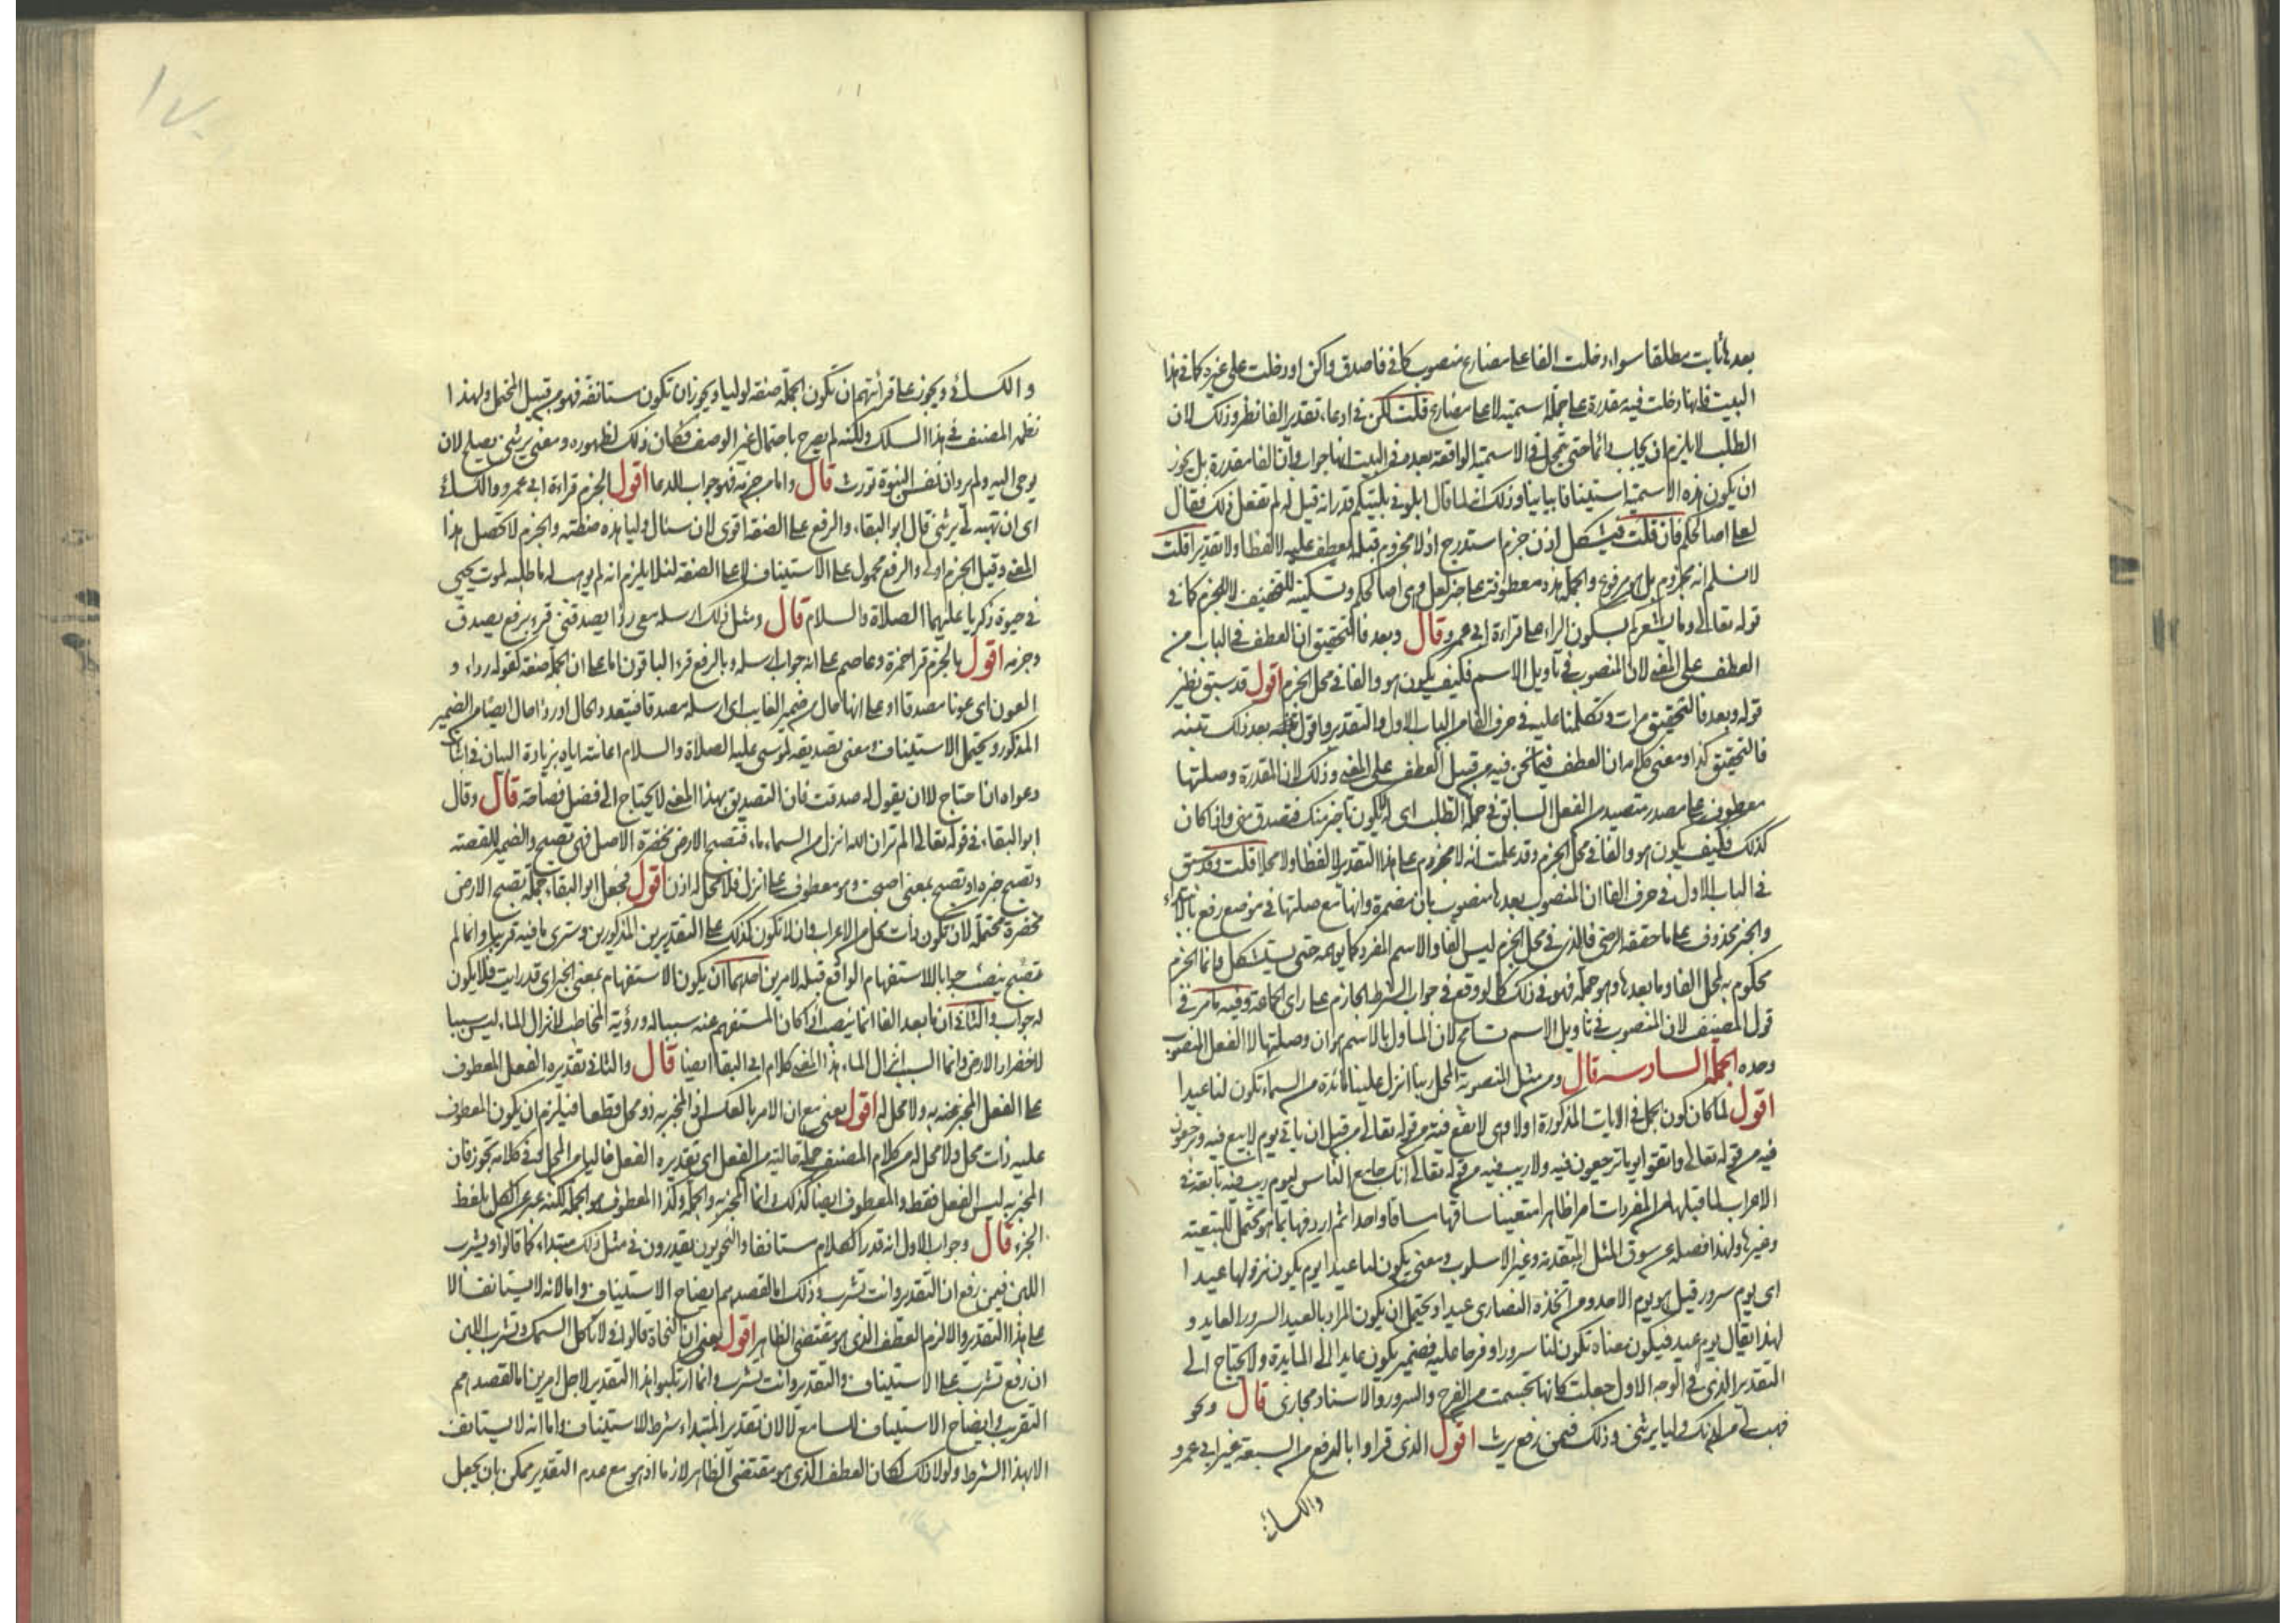 بعدها ثابت مطلقا سواء دخلت الفا على مضارع منصوب كما في فاصدق واكن او دخلت على غيره كما في هذا
البيت فانها دخلت فيه مقدرة على جملة اسمية لا على مضارع قلت لكن في ادعاء تقدير الفا نظر وذلك لان
الطلب لا يلزم ان يجاب دائما حتى تجعل في الاسمية الواقعة بعده في البيت انها جوابه وان الفا مقدرة بل يجوز
ان يكون هذه الاسمية استينافا بيانيا وذلك انه لما قال ابلوني بليتكم قدر انه قيل له لم تفعل ذلك فقال
لعلي اصالحكم فان قلت فيشكل اذن جزم استدرج اذ لا مجزوم قبله يعطف عليه لا لفظا ولا تقديرا قلت
لا نسلم انه مجزوم بل هو مرفوع والجملة هذه معطوفة على خبر لعل وهي اصالحكم وتسكينه للتخفيف لا للجزم كما في
قوله تعالى وما يشعركم بسكون الراء على قراءة ابي عمرو قال وبعد فالتحقيق ان العطف في الباب من
العطف على المعنى لان المنصوب في تاويل الاسم فكيف يكون هو والفا في محل الجزم اقول قد سبق نظير
قوله وبعد فالتحقيق مرات وتكلمنا عليه في حرف الفا من الباب الاول والتقدير واقول بعد ذلك تنبه
فالتحقيق كذا ومعنى كلامه ان العطف فيما نحن فيه من قبيل العطف على المعنى وذلك لان المقدرة وصلتها
معطوف على مصدر متصيد من الفعل السابق في جملة الطلب اي ليكون تاخير منك فتصدق مني واذا كان
كذلك فكيف يكون هو والفا في محل الجزم وقد علمت انه لا مجزوم على هذا التقدير لا لفظا ولا محلا قلت قد سبق
في الباب الاول في حرف الفا ان المنصوب بعدها منصوب بان مضمرة وانها مع صلتها في موضع رفع بالابتداء
والخبر محذوف على ما حققه الرضي فالذي في محل الجزم ليس الفا والاسم المفرد كما يوهمه حتى يستشكل وانما الجزم
محكوم به لمحل الفا وما بعدها وهو جملة فهو في ذلك كما لو وقع في جواب الشرط الجازم على راي الجماعة وفيه ما مر في
قول المصنف لان المنصوب في تاويل الاسم تسامح لان الماول بالاسم هو ان وصلتها لا الفعل المنصوب
وحده الجملة السادسة قال ومن مثل المنصوبة المحل ربنا انزل علينا مائدة من السماء تكون لنا عيدا
اقول لما كان كون الجمل في الايات المذكورة اولا وهي لا بيع فيه من قوله تعالى من قبل ان ياتي يوم لا بيع فيه وترجعون
فيه من قوله تعالى واتقوا يوما ترجعون فيه ولا ريب فيه من قوله تعالى انك جامع الناس ليوم لا ريب فيه تابعة في
الاعراب لما قبلها من المفردات امرا ظاهرا متعينا ساقها مساقا واحدا ثم اردفها بما هو محتمل للتبعية
وغيرها ولهذا فصله عن سوق المثل المتقدمة وغير الاسلوب ومعنى يكون لنا عيدا يوم يكون نزولها عيدا
اي يوم سرور قيل هو يوم الاحد ومن ثم اتخذه النصارى عيدا ويحتمل ان يكون المراد بالعيد السرور العايد و
لهذا يقال يوم عيد فيكون معناه تكون لنا سرورا وفرحا وعليه فضمير يكون عايد الى المايدة ولا يحتاج الى
التقدير الذي في الوجه الاول جعلت كانها تجسمت من الفرح والسرور والاسناد مجازي قال ونحو
فهب لي من لدنك وليا يرثني وذلك فيمن رفع يرث اقول الذي قراوا بالرفع من السبعة غير ابي عمرو
والكسائي
والكسائي ويجوز على قراءتهم ان تكون الجملة صفة لوليا ويجوز ان تكون مستانفة فهو من قبيل المحتمل ولهذا
نظمه المصنف في هذا السلك ولكنه لم يصرح باحتمال غير الوصف فكان ذلك لظهوره ومعنى يرثني يصلح لان
يوحى اليه ولم يرد ان نفس النبوة تورث قال واما من جزمه فهو جواب للدعا اقول الجزم قراءة ابي عمرو والكسائي
اي ان تهبه لي يرثني قال ابو البقاء والرفع على الصفة اقوى لان سئال وليا هذه صفته والجزم لا تحصل هذا
المعنى وقيل الجزم اولى والرفع محمول على الاستيناف لا على الصفة لئلا يلزم انه لم يوهب له ما طلبه لموت يحيى
في حيوة زكريا عليهما الصلاة والسلام قال ومثل ذلك ارسله معي ردا يصدقني قرئ برفع يصدق
وجزمه اقول بالجزم قرا حمزة وعاصم على انه جواب ارسله وبالرفع قرء الباقون اما على ان الجملة صفة لقوله رداء و
العون اي عونا مصدقا او على انها حال من ضمير الغايب اي ارسله مصدقا فيتعدد الحال او ردا حال ايضا من الضمير
المذكور ويحتمل الاستيناف ومعنى تصديقه لموسى عليه الصلاة والسلام اعانته اياه بزيادة البيان في اثبات
دعواه ان احتاج لا ان يقول له صدقت فان التصديق بهذا المعنى لا يحتاج الى فضل فصاحة قال وقال
ابو البقاء في قوله تعالى الم تر ان الله انزل من السماء ماء فتصبح الارض مخضرة الاصل فهي تصبح والضمير للقصة
وتصبح خبره او تصبح بمعنى اصبحت وهو معطوف على انزل فلا محل له اذن اقول فجعل ابو البقاء جملة تصبح الارض
مخضرة محتملة لان تكون ذات محل من الاعراب وان لا تكون كذلك على التقديرين المذكورين وسترى ما فيه قريبا وانما لم
تصبح ينصب جوابا بالاستفهام الواقع قبله لامرين احدهما ان يكون الاستفهام بمعنى الخبر اي قد رايت فلا يكون
له جواب والثاني ان ما بعد الفا انما ينصب اذا كان المستفهم عنه سببا له ورؤية المخاطب لانزال الماء ليس سببا
لاخضرار الارض وانما السبب انزال الماء هذا المعنى كلام ابي البقاء ايضا قال والثاني تقديره الفعل المعطوف
على الفعل المخبر عنه به ولا محل له اقول يعني مع ان الامر بالعكس اذ المخبر به ذو محل قطعا فيلزم ان يكون المعطوف
عليه ذات محل ولا محل له من كلام المصنف جملة حالية من الفعل اي تقديره الفعل خاليا من المحل ففي كلامه تجوز فان
المخبر به ليس الفعل فقط والمعطوف ايضا كذلك وانما المخبر به والجملة وكذا المعطوف هو الجملة لكنه عبر عن الكل بلفظ
الجزء قال وجواب الاول انه قدر الكلام مستانفا والنحويون يقدرون في مثل ذلك مبتداء كما قالوا ويشرب
اللبن فيمن رفع ان التقدير وانت تشرب وذلك اما لقصدهم ايضاح الاستيناف واما لانه لا يستانف الا
على هذا التقدير والا لزم العطف الذي هو مقتضى الظاهر اقول يعني ان النحاة قالوا في لا تاكل السمك وتشرب اللبن
ان رفع تشرب على الاستيناف والتقدير وانت تشرب وانما ارتكبوا هذا التقدير لاجل امرين اما لقصدهم
التقريب وايضاح الاستيناف للسامع لا لان تقدير المبتداء شرط الاستيناف واما انه لا يستانف
الا بهذا الشرط ولولا ذلك لكان العطف الذي هو مقتضى الظاهر لازما اذ هو مع عدم التقدير ممكن بان يجعل